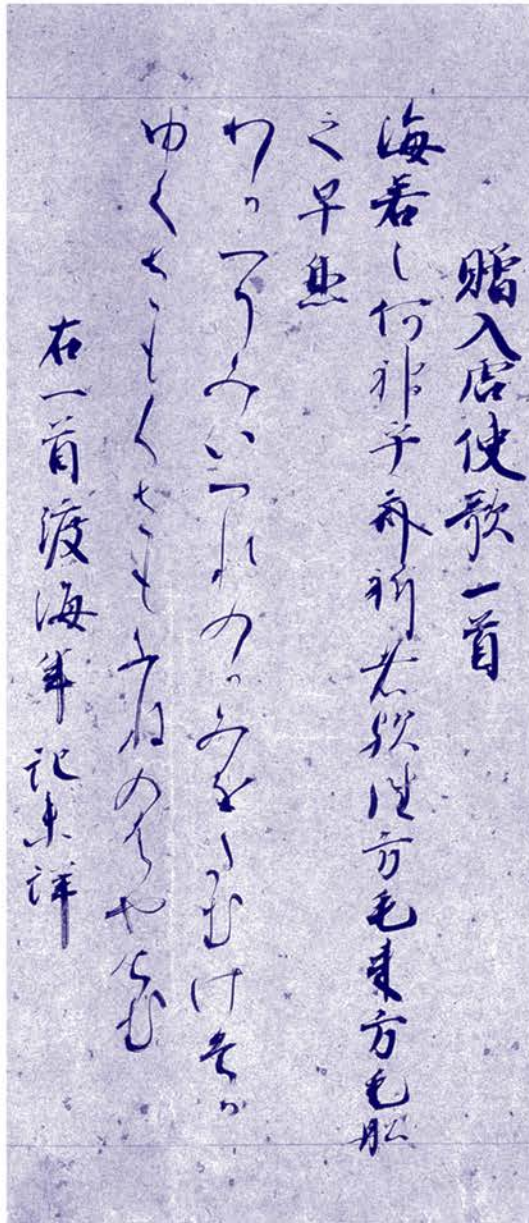 贈入唐使歌一首
海若之何神乎齊祈者歟徃方毛来方毛舶
之早兼
わたつうみいつれのかみをたむけはか
ゆくさもくさもふねのはやけむ
右一首渡海年記未詳